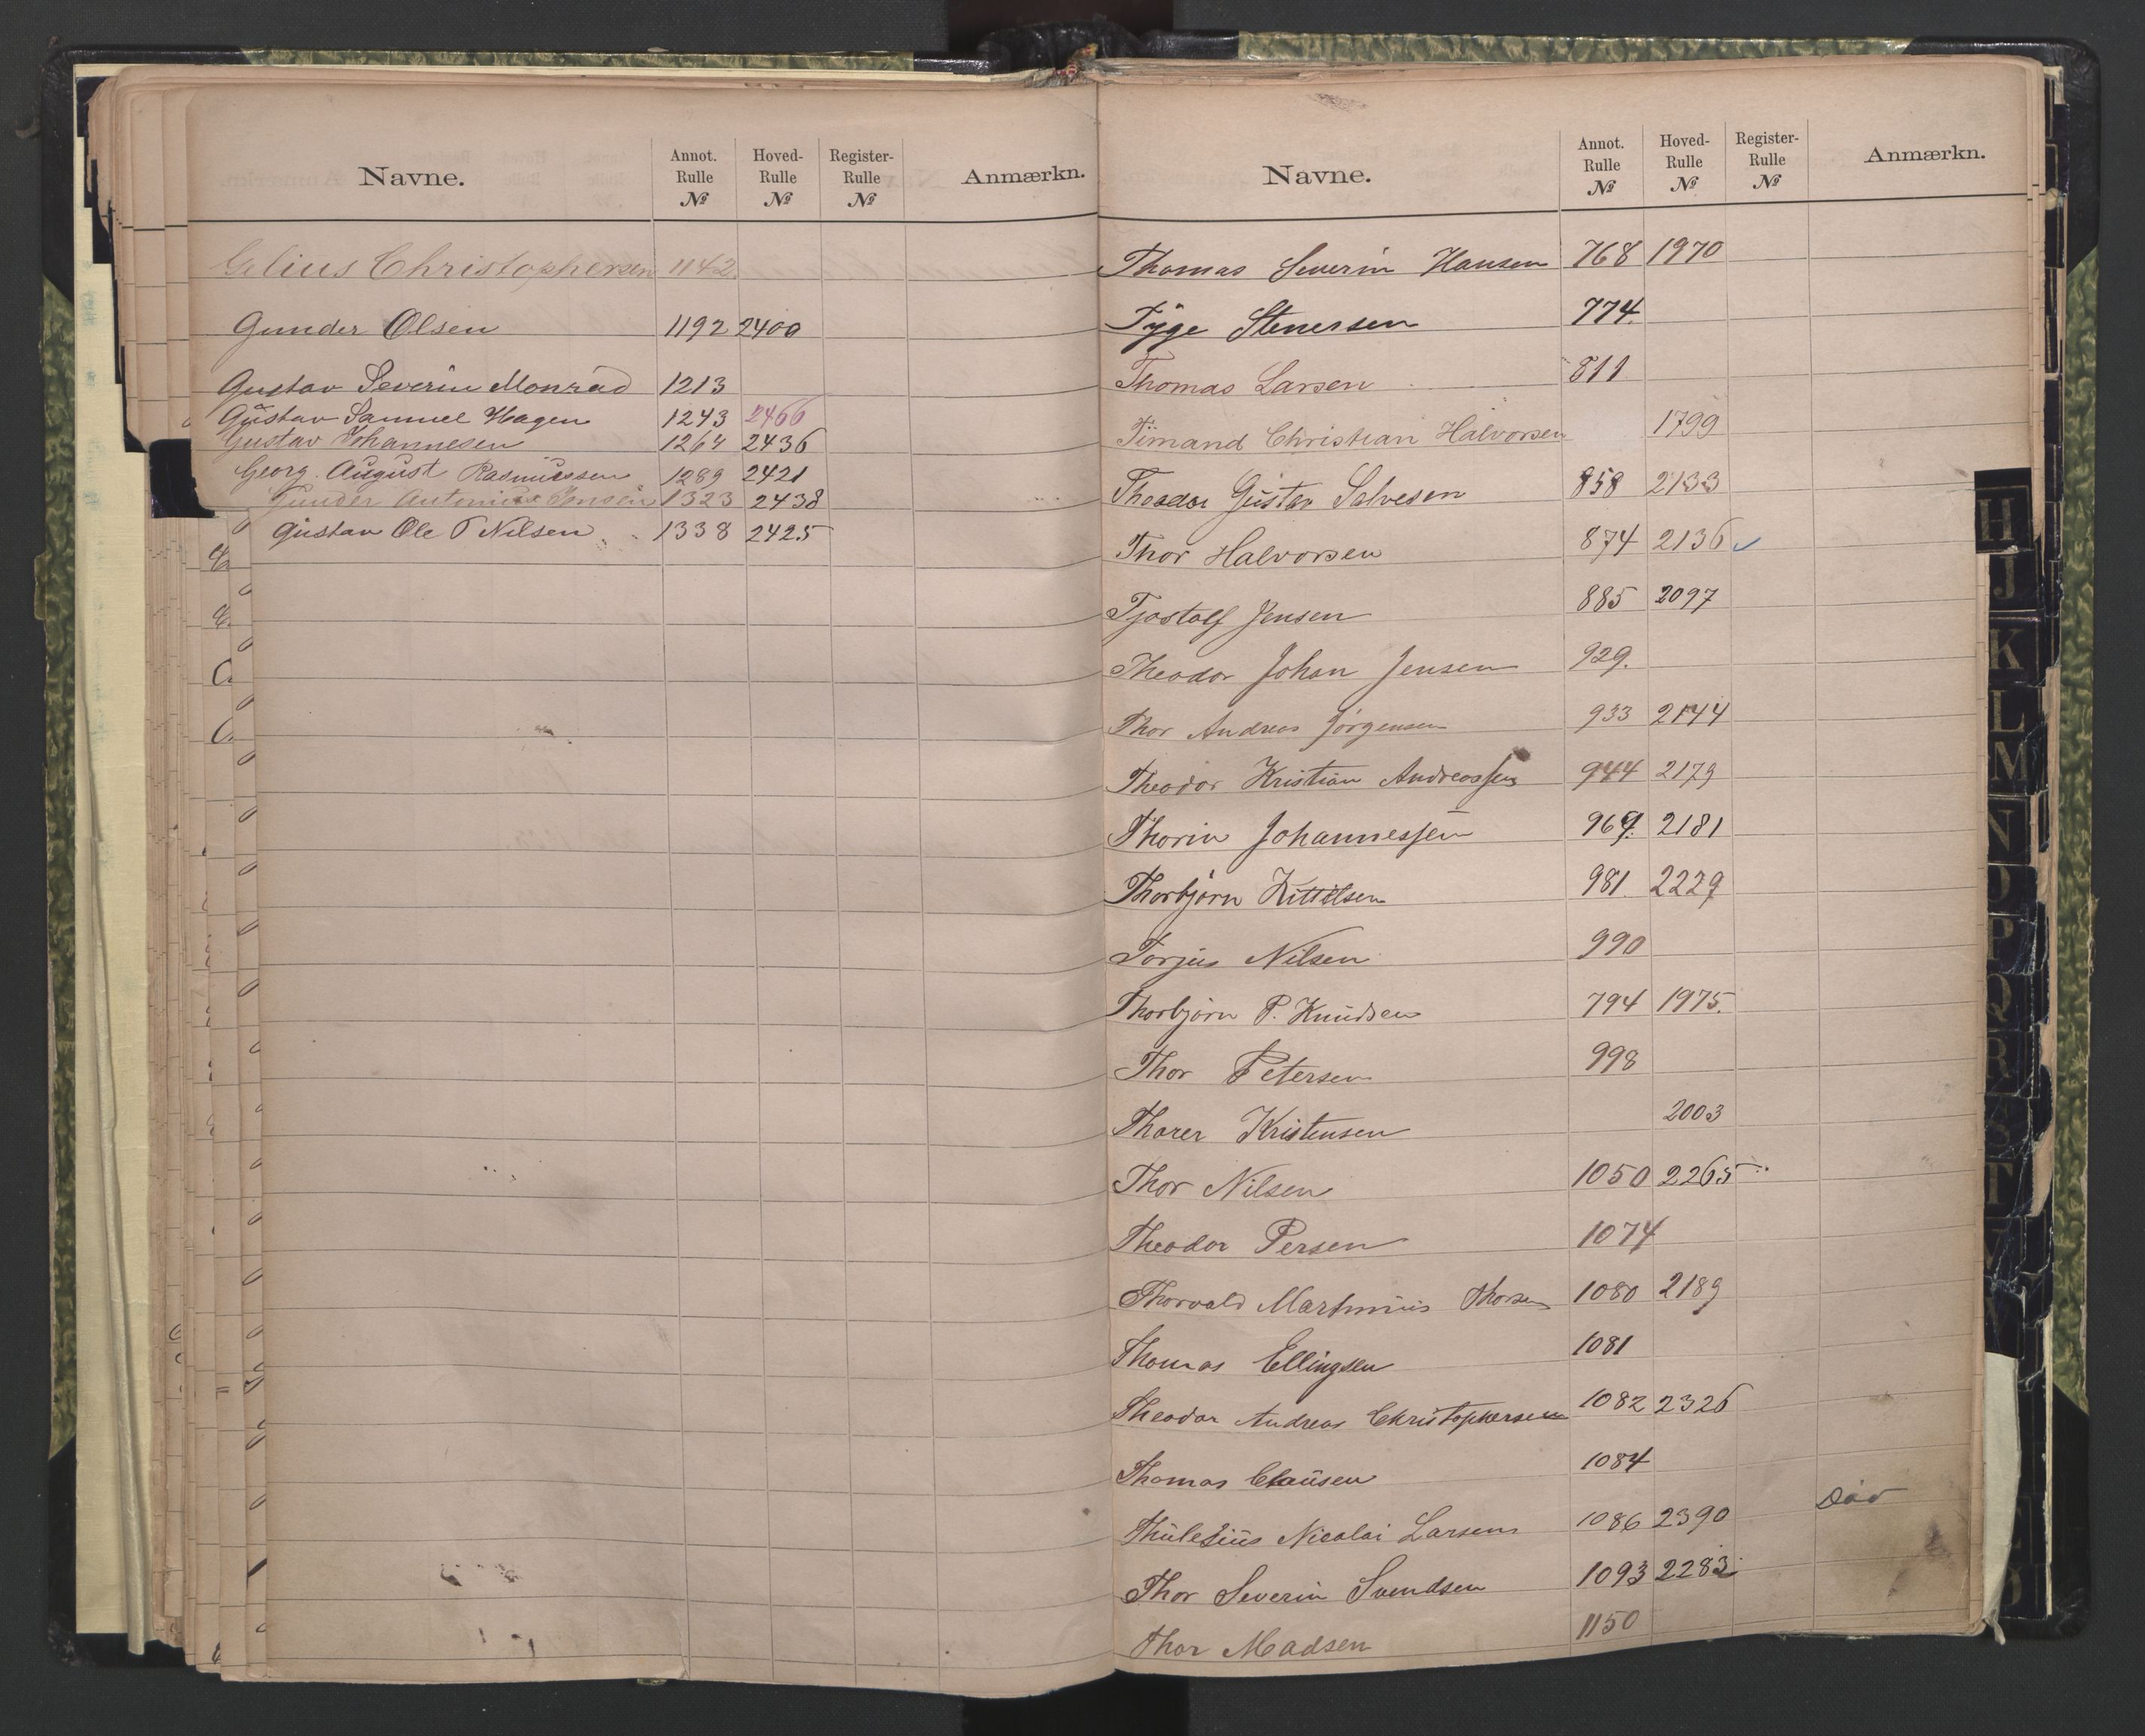 Navne. Annot. Rulle № Hoved-Rulle № Register-Rulle № Anmærkn.
Gelius Christophersen 1142
Gunder Olsen 1192 2400
Gustav Severin Monrad 1213
Gustav Samuel Hagen 1243 2466
Gustav Johannesen 1264 2436
Georg August Rasmussen 1289 2421
Gunder Antonius Jensen 1323 2438
Gustav Ole T Nilsen 1338 2425
Navne. Annot. Rulle № Hoved-Rulle № Register-Rulle № Anmærkn.
Thomas Severin Hansen 768 1970
Tÿge Stenersen 774.
Thomas Larsen 811
Timand Christian Halvorsen 1799
Theodor Gustav Salvesen 858 2133
Thor Halvorsen 874 2136 ✓
Tjostolf Jensen 885 2097
Theodor Johan Jensen 929.
Thor Andreas Jörgensen 933 2144
Theodor Kristian Andreassen 944 2179
Thorin Johannessen 969. 2181
Thorbjörn Kittilsen 981. 2229
Torjus Nilsen 990
Thorbjörn P. Knudsen 794 1975.
Thor Petersen 998
Thorer Kristensen 2003
Thor Nilsen 1050 2265
Theodor Persen 1074
Thorvald Martinius Thorsen 1080 2189
Thomas Ellingsen 1081
Theodor Andreas Christophersen 1082 2326
Thomas Clausen 1084
Thulesius Nicolai Larsen 1086 2390 Död
Thor Severin Svendsen 1093 2283
Thor Madsen 1150
H
J
K
L
M
N
O
P
Q
R
S
T
V